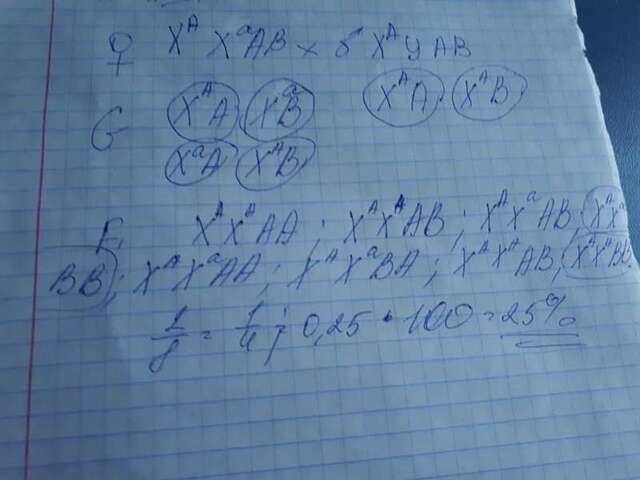 ♀ XᴬXᵃAB × ♂ XᴬУAB
G XᴬA XᵃB XᴬA XᴬB
XᵃA XᴬB
F₁ XᴬXᴬAA; XᴬXᴬAB; XᴬXᵃAB, XᴬXᵃ
BB; XᴬXᵃAA; XᴬXᵃBA; XᴬXᴬAB, XᴬXᴬBB
2/8 = 1/4; 0,25 • 100 = 25%